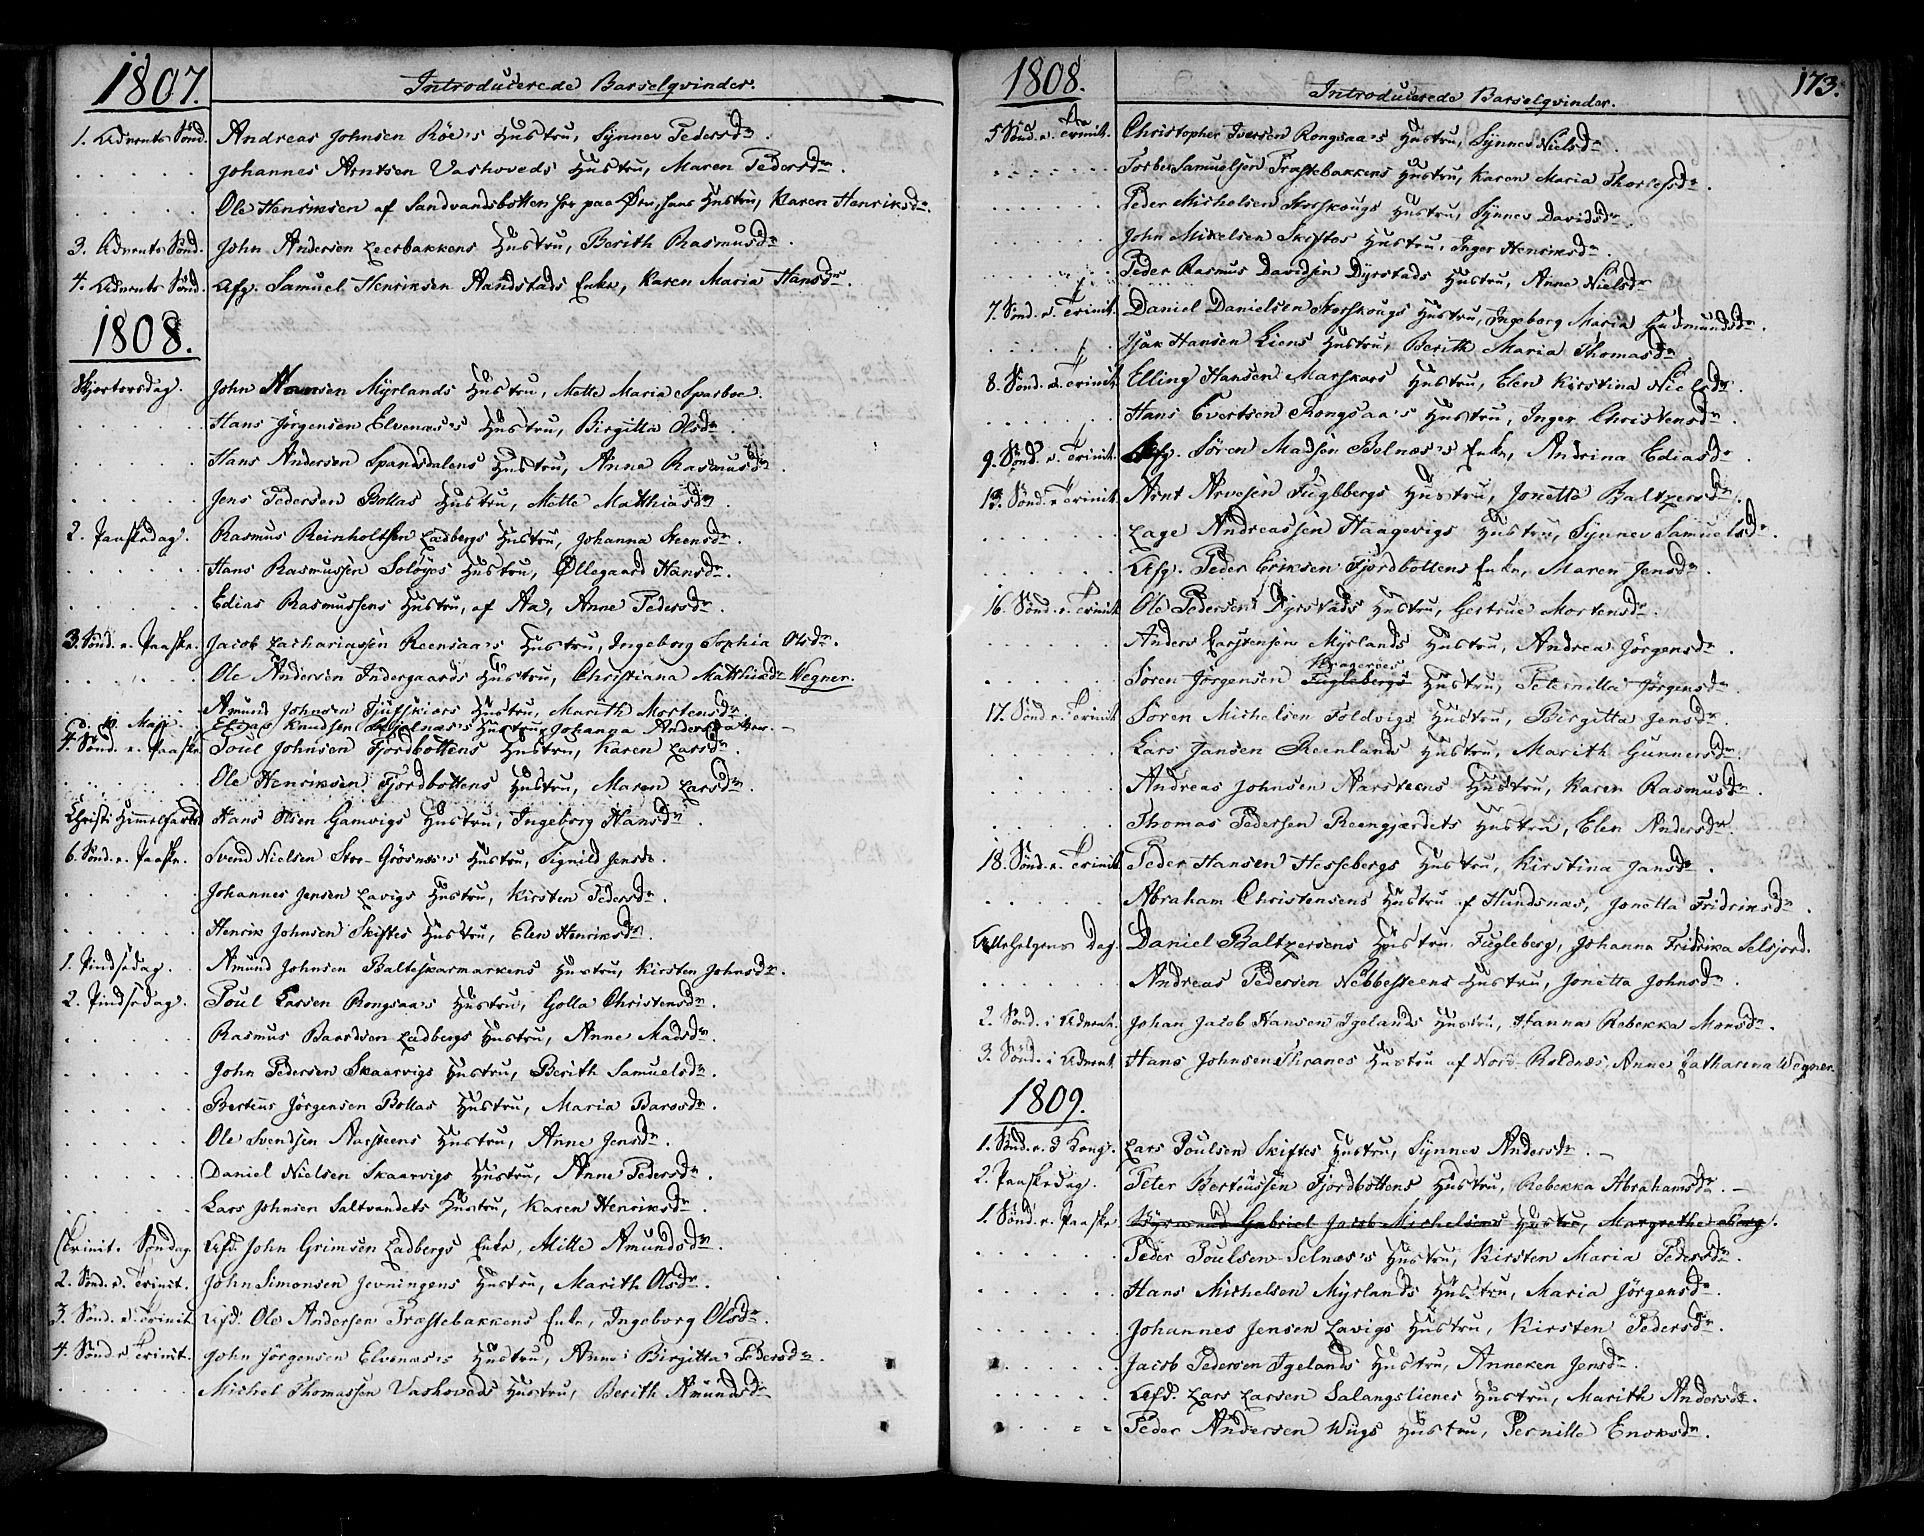 1807.
Introducerede Barselqvinder.
1. Advents Sönd. Andreas Johnsen Röe's Hustru, Synnev Pedersdr.
Johannes Arntsen Vashoveds Hustru, Maren Pedersdr.
Ole Henriksen af Sandvandsbotten her paa Øen, hans Hustru, Karen Henriksdr.
3. Advents Sönd. John Andersen Leerbakkens Hustru, Berith Rasmusdr.
4. Advents Sönd. Afg. Samuel Henriksen Aandstads Enke, Karen Maria Hansdr.
1808.
Skjertorsdag. John Hansen Myrlands Hustru, Mette Maria Sparboe.
Hans Jörgensen Elvenæs's Hustru, Birgitta Olsdr.
Hans Andersen Spandsdalens Hustru, Anna Rasmusdr.
Jens Pedersen Bollas Hustru, Mette Matthiasdr.
2. Paaskedag. Rasmus Reinholtsen Ladbergs Hustru, Johanna Steensdr.
Hans Rasmussen Soløyes Hustru, Øllegaard Hansdr.
Edias Rasmussens Hustru, af Aa, Anne Pedersdr.
3. Sönd. e. Paaske. Jacob Zachariassen Reensaa's Hustru, Ingeborg Sophia Olsdr.
Ole Andersen Indergaards Hustru, Christiana Matthiadr Wegner.
Amund Johnsen Fjufskjærs Hustru, Marith Mortensdr.
10 Maji Elias Knudsen Selnæs's Hustru, Johanna Andersdatter.
4. Sönd. e. Paaske. Poul Johnsen Fjordbottens Hustru, Karen Larsdr.
Ole Henriksen Fjordbottens Hustru, Maren Larsdr.
Christi Himmelfarted Hans Olsen Gamvigs Hustru, Ingeborg Hansdr.
6. Sönd. e. Paaske. Svend Nielsen Stor-Grösnæs's Hustru, Signild Jensdr.
Johannes Jensen Lavigs Hustru, Kirsten Pedersdr.
Henrik Johnsen Skiftes Hustru, Elen Henriksdr.
1. Pindsedag. Amund Johnsen Balteskarmarkens Hustru, Kirsten Johnsdr.
2. Pindsedag. Poul Larsen Rongsaa's Hustru, Golla Christensdr.
Rasmus Baardsen Ladbergs Hustru, Anne Madsdr.
John Pedersen Skaarvigs Hustru, Berith Samuelsdr.
Berteus Jörgensen Bollas Hustru, Maria Larsdr.
Ole Svendsen Aarsteens Hustru, Anne Jensdr.
Daniel Nielsen Skaarvigs Hustru, Anne Pedersdr.
Lars Johnsen Saltvandets Hustru, Karen Henriksdr.
Trinit. Søndag. Afd. John Grimsen Ladbergs Enke, Mille Amundsdr.
2. Sönd. e. Trinit. John Simonsen Jevningens Hustru, Marith Olsdr.
3. Sönd. e. Trinit. Afd. Ole Andersen Træstebakkens Enke, Ingeborg Olsdr.
4. Sönd. e. Trinit. John Jörgensen Elvenæs's Hustru, Anne Birgitta Pedersdr.
Michel Thomassen Vashoveds Hustru, Berith Amundsdr
1808.
Introducerede Barselqvinder.
173.
5 Sönd. e. Trinit. Christopher Iversen Rongsaa's Hustru, Synnev Nielsdr.
Torber Samuelsen Træstebakkens Hustru, Karen Maria Thorlefsdr.
Peder Michelsen Storskougs Hustru, Synnev Davidsdr.
John Mikelsen Skiftes Hustru, Inger Henriksdr.
Peder Rasmus Davidsen Dyrstads Hustru, Anne Nielsdr
7. Sönd. e. Trinit. Daniel Danielsen Storskougs Hustru, Ingeborg Maria Gudmundsdr.
Isak Hansen Liens Hustru, Berith Maria Thomasdr
8. Sönd. e. Trinit. Elling Hansen Marskars Hustru, Elen Kirstina Nielsdr.
Hans Evertsen Rongsaa's Hustru, Inger Christensdr.
9. Sönd. e. Trinit. Afg. Sören Madsen Bolnæs's Enke, Andrina Ediasdr.
13. Sönd. e. Trinit. Arnt Arvesen Fuglbergs Hustru, Jonetta Baltzersdr.
Lage Andreassen Haagevigs Hustru, Synnev Samuelsdr.
Afg. Peder Eriksen Fjordbottens Enke, Maren Jensdr.
16. Sönd. e. Trinit. Ole Pedersens Dyrstads Hustru, Gertrue Mortensdr.
Anders Carstensen Myrlands Hustru, Andrea Jörgensdr.
Krageröes
Sören Jörgensen Fuglebergs Hustru, Peternilla Jörgensdr.
17. Sönd. e. Trinit. Sören Michelsen Foldvigs Hustru, Birgitta Jensdr.
Lars Jansen Reenlands Hustru, Marith Gunnersdr.
Andreas Johnsen Aarsteens Hustru, Karen Rasmusdr.
Thomas Pedersen Reengjærdets Hustru, Elen Andersdr.
18. Sönd. e. Trinit. Peder Hansen Hessebergs Hustru, Kirstina Jansdr.
Abraham Christensens Hustru af Hundsnæs, Jonetta Fridriksdr.
Allehelgens Dag. Daniel Baltzersens Hustru Fugleberg, Johanna Fridrika Selsjord.
Andreas Pedersen Nebbesteens Hustru, Jonetta Johnsdr.
2. Sönd. i Advent. Johan Jacob Hansen Igelands Hustru, Hanna Rebekka Monsdr.
3. Sönd. i Advent. Hans Johnsen Thranes Hustru af Nord-Roldnæs, Anne Catharina Wegner.
1809.
1. Sönd. e. 3 Kong. Lars Poulsen Skiftes Hustru, Synnev Andersdr.
2. Paaskedag. Peter Berteussen Fjordbottens Hustru, Rebekka Abrahamsdr.
1. Sönd. e. Paaske. Gabriel Jacob Michelsens Hustru, Margrethe
Peder Poulsen Selnæs's Hustru, Kirsten Maria Pedersdr.
Hans Michelsen Myrlands Hustru, Maria Jörgensdr.
Johannes Jensen Lavigs Hustru, Kirsten Pedersdr.
Jacob Pedersen Igelands Hustru, Anneken Jensdr.
Afd. Lars Larsen Salangslienes Hustru, Marith Andersdr.
Peder Andersen Wigs Hustru, Pernille Enoksdr.